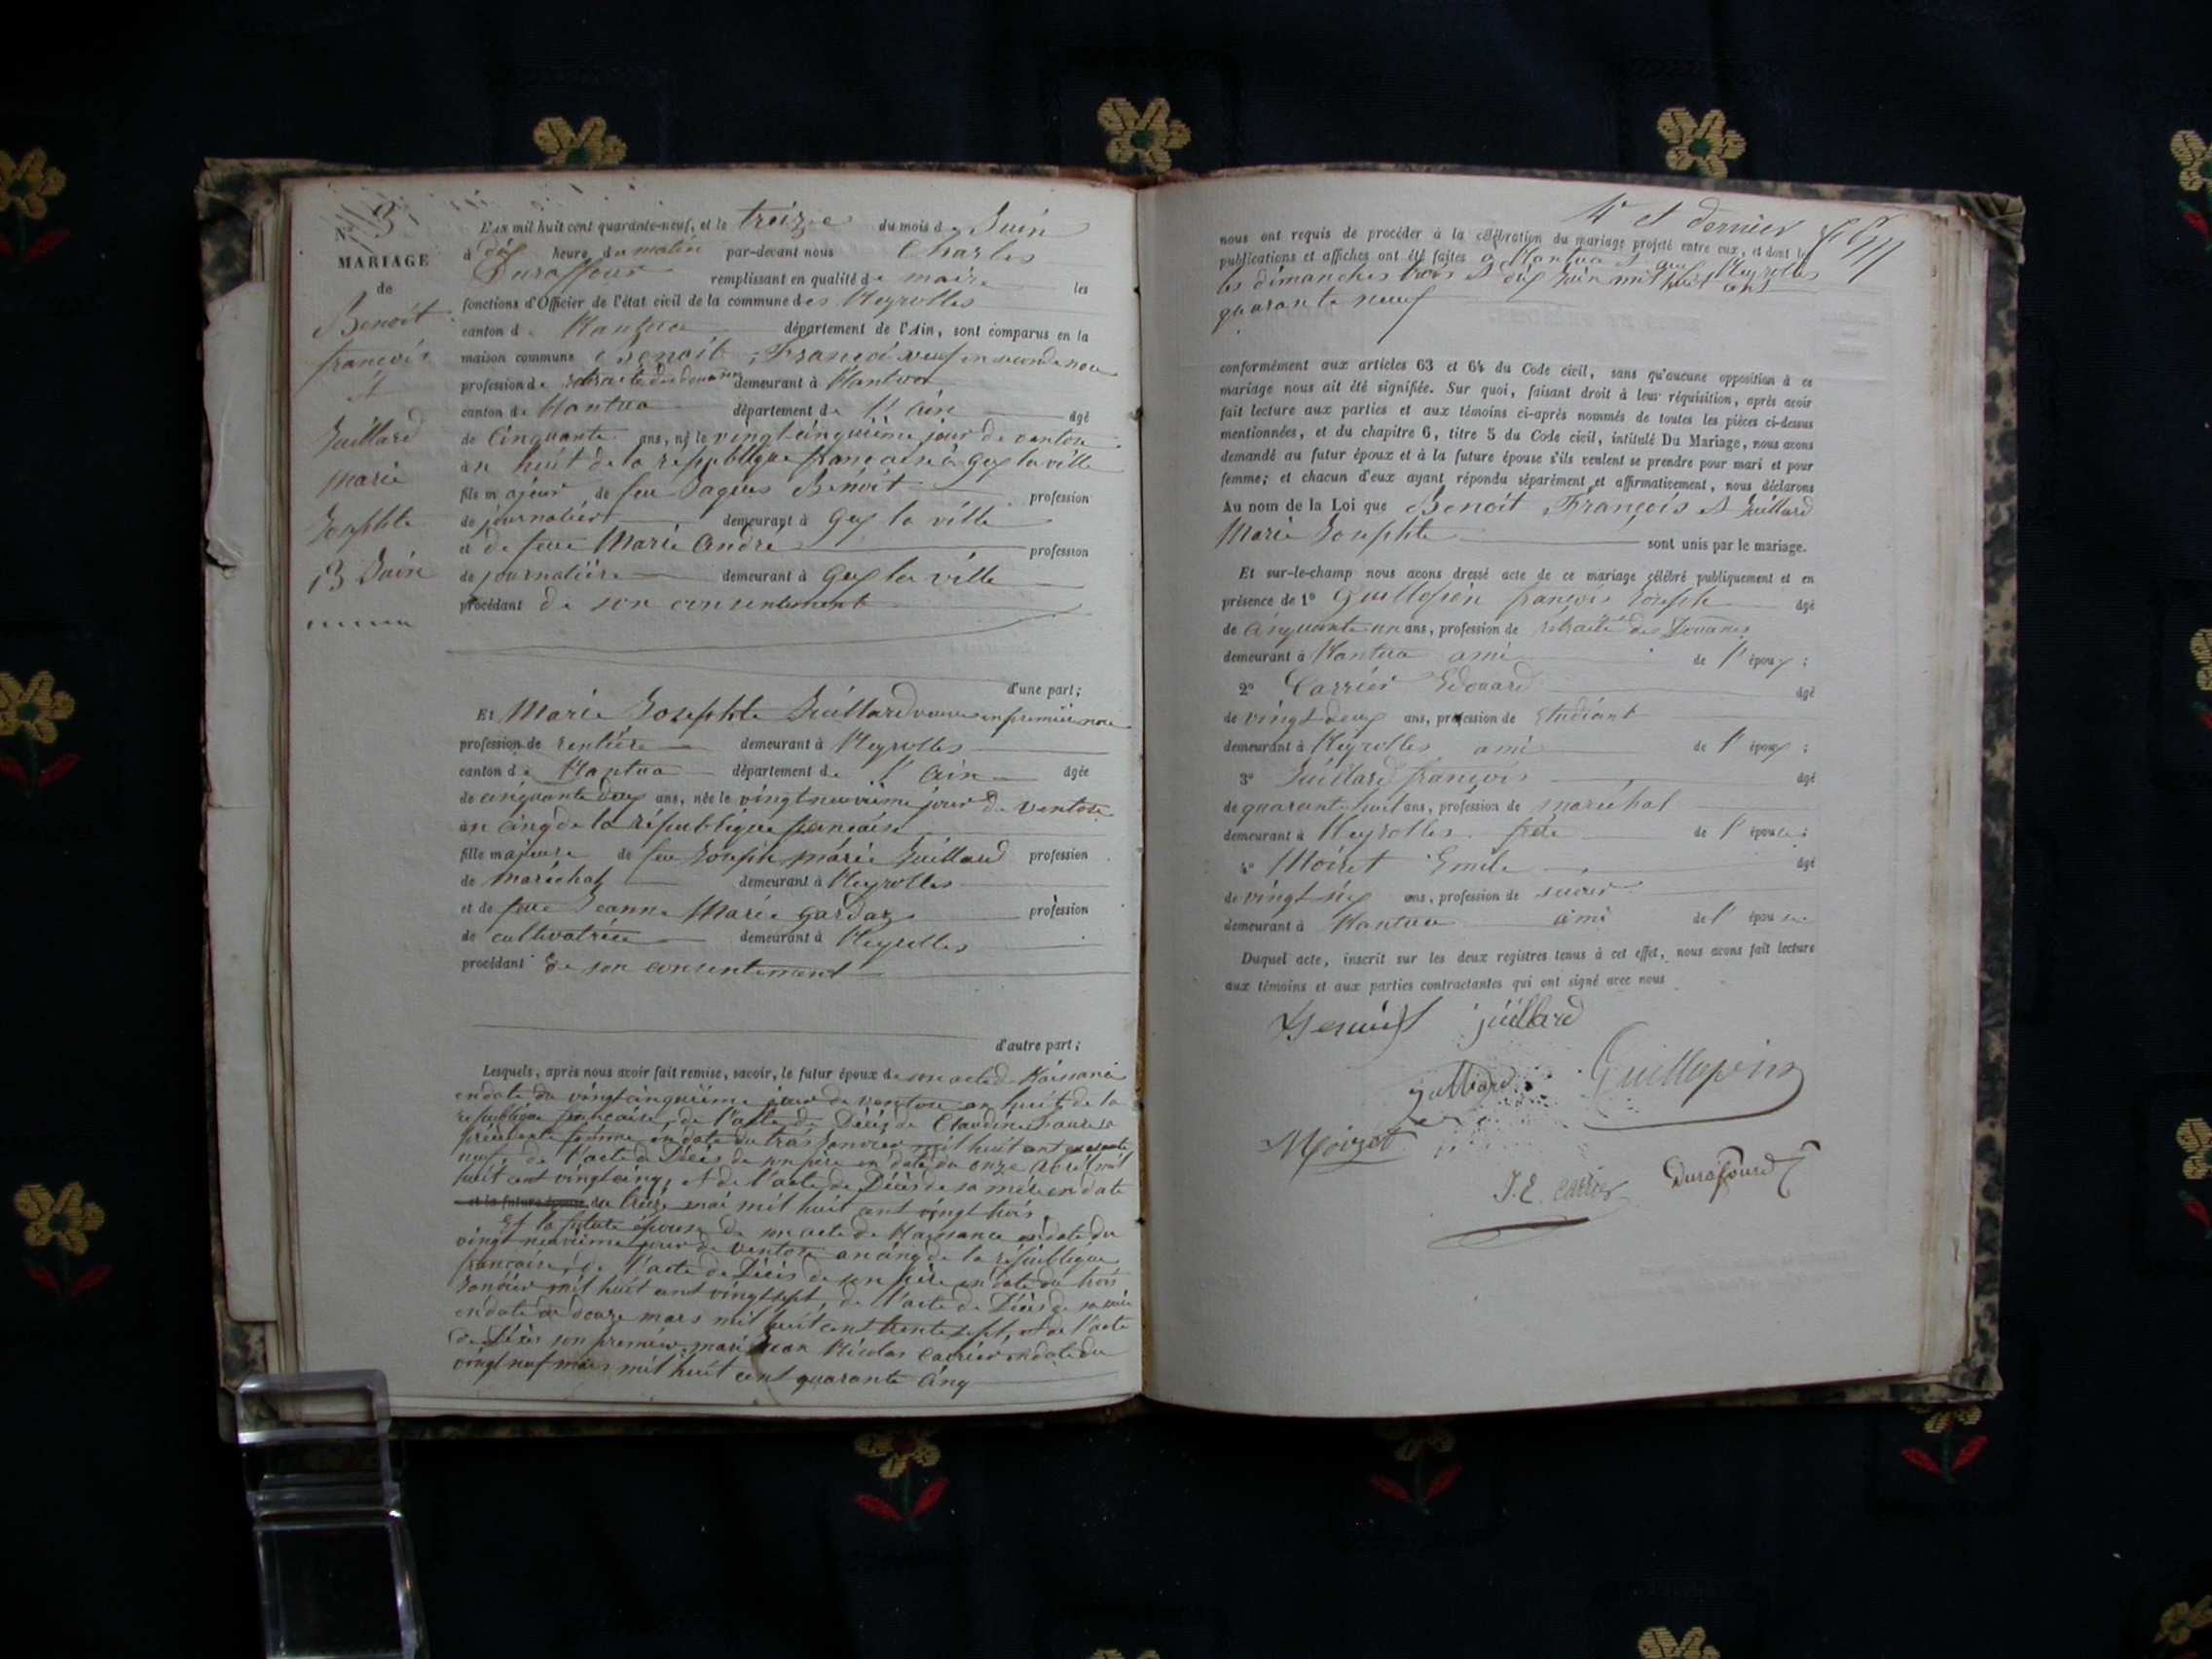 N° 3
MARIAGE
de
Benoit
françois
et
Juillard
marie
Josephte
13 Juin
L'an mil huit cent quarante-neuf, et le treize du mois de Juin
à dix heure du matin par-devant nous Charles
Duraffour remplissant en qualité de maire les
fonctions d'Officier de l'état civil de la commune des Neyrolles
canton de Nantua département de l'Ain, sont comparus en la
maison commune Benoit, François veuf en seconde noce
profession de retraité des douanes demeurant à Nantua
canton de Nantua département de l'ain âgé
de Cinquante ans, né le vingt cinquième jour de ventose
an huit de la république française à Gex la ville
fils majeur de feu Jaques Benoit profession
de journalier demeurant à Gex la ville
et de feue Marie André profession
de journalière demeurant à Gex la ville
procédant de son consentement
d'une part;
Et Marie Josephte Juillard veuve en premiere noce
profession de rentière demeurant à Neyrolles
canton de Nantua département de l'ain âgée
de cinquante deux ans, née le vingt neuvième jour de ventose
an cinq de la république française
fille majeure de feu Joseph marie Juillard profession
de maréchal demeurant à Neyrolles
et de feue Jeanne Marie Gardaz profession
de cultivatrice demeurant à Neyrolles
procédant de son consentement
d'autre part;
Lesquels, après nous avoir fait remise, savoir, le futur époux de son acte de Naissance
en date du vingt cinquième jour de ventose an huit de la
republique française, de l'acte de Décès de Claudine
précédente femme en date du trois Janvier mil huit cent quarante
neuf, de l'acte de Décès de son père en date du onze avril mil
huit cent vingt cinq, et de l'acte de Décès de sa mère en date
et la future épouse du treize mai mil huit cent vingt trois
Et la future épouse de son acte de Naissance en date du
vingt neuvième jour de ventose an cinq de la république
française, de l'acte de Décès de son père en date du trois
Janvier mil huit cent vingt sept, de l'acte de Décès de sa mère
en date du douze mars mil huit cent trente sept, et de l'acte
de Décès son premier mari Jean Nicolas Carrier en date du
vingt neuf mars mil huit cent quarante cinq
4e et dernier
nous ont requis de procéder à la célébration du mariage projeté entre eux, et dont les
publications et affiches ont été faites à Nantua et aux Neyrolles
les dimanches trois et dix Juin mil huit cent
quarante neuf
conformément aux articles 63 et 64 du Code civil, sans qu'aucune opposition à ce
mariage nous ait été signifiée. Sur quoi, faisant droit à leur réquisition, après avoir
fait lecture aux parties et aux témoins ci-après nommés de toutes les pièces ci-dessus
mentionnées, et du chapitre 6, titre 5 du Code civil, intitulé Du Mariage, nous avons
demandé au futur époux et à la future épouse s'ils veulent se prendre pour mari et pour
femme; et chacun d'eux ayant répondu séparément et affirmativement, nous déclarons
Au nom de la Loi que Benoit François et Juillard
Marie Josephte sont unis par le mariage.
Et sur-le-champ nous avons dressé acte de ce mariage célébré publiquement et en
présence de 1° Guillopin françois Joseph âgé
de cinquante un ans, profession de retraité des Douanes
demeurant à Nantua ami de l'époux;
2° Carrier Edouard âgé
de vingt deux ans, profession de étudiant
demeurant à Neyrolles ami de l'époux;
3° Juillard françois âgé
de quarante huit ans, profession de maréchal
demeurant à Neyrolles frère de l'épouse;
4° Moiret Emile âgé
de vingt six ans, profession de
demeurant à Nantua ami de l'épouse
Duquel acte, inscrit sur les deux registres tenus à cet effet, nous avons fait lecture
aux témoins et aux parties contractantes qui ont signé avec nous
Benoist juillard
Guillopin
Moiret
J. E. Carrier Duraffourd